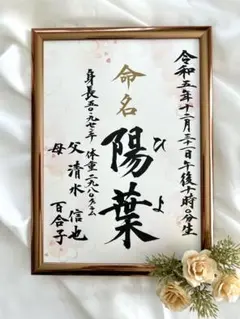 令和五年十二月三十一日午後十時〇分生
命名
陽葉
ひよ
身長五〇・九センチ 体重二九八〇グラム
父 清水 信也
母 百合子